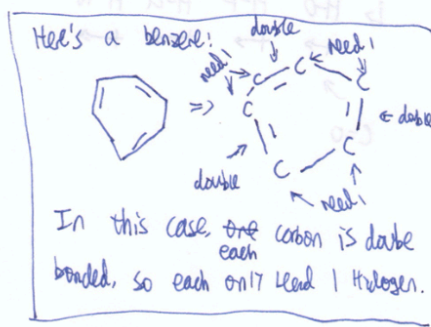 Here's a benzene!
double
need 1
need 1
C
C
C
C
C
C
double
double
need 1
In this case, one each carbon is double
bonded, so each only need 1 Hydrogen.